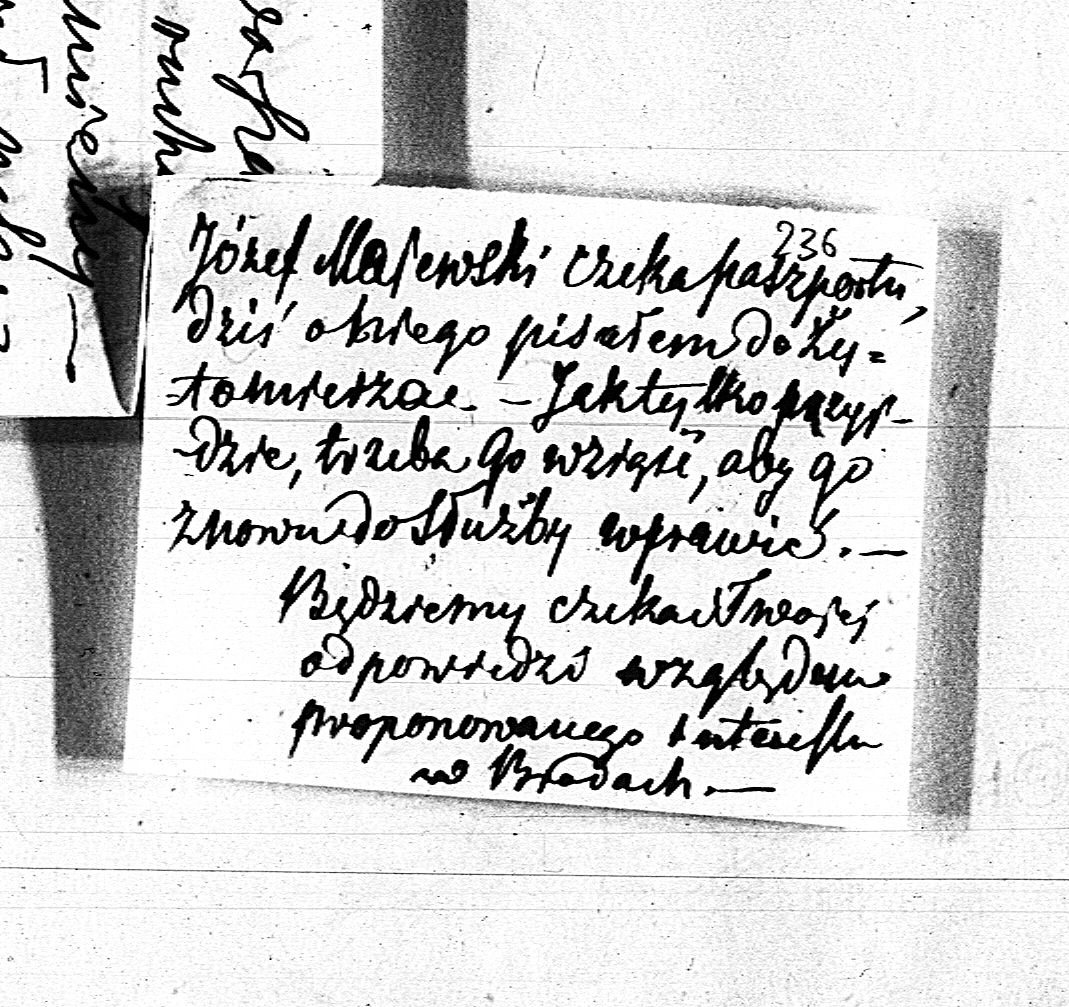 236
Józef Majewski czeka paszportu,
dziś o niego pisałem do Ży=
=tomierza. – Jak tylko przyj-
-dzie, trzeba go wziąść, aby go
znowu do służby wprawić. —
Będziemy czekać Twojej
odpowiedzi względem
proponowanego interessu
w Brodach. —